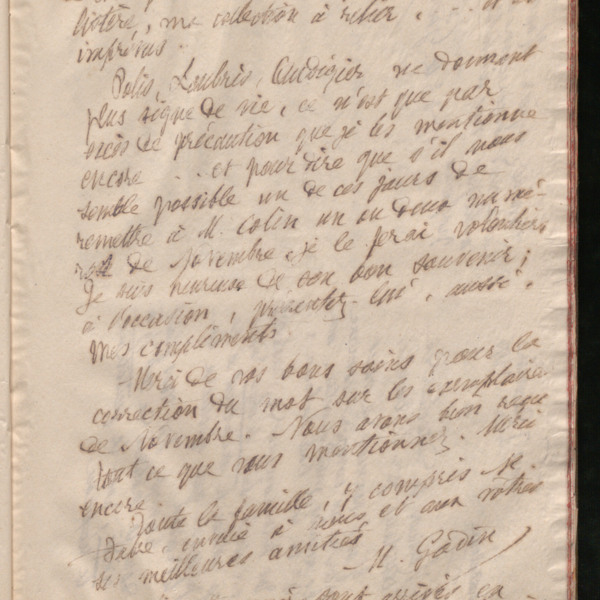 ma collection à relier . . .
imprévus . .
Polis, Loubris, Audigier ne donnent
plus signe de vie, ce n'est que par
excès de précaution que je les mentionne
encore . . . et pour dire que s'il nous
semble possible un de ces jours de
remettre à M. Colin un ou deux numé-
ros de Novembre, je le ferai volontiers.
Je suis heureuse de son bon souvenir ;
à l'occasion, présentez-lui, aussi,
mes compliments
Merci de vos bons soins pour la
correction du mot sur les exemplaires
de Novembre. Nous avons bien reçu
tout ce que vous mentionnez. Merci
encore
Toute la famille, y compris M.
Fabre, envoie à vous et aux vôtres
ses meilleures amitiés
M. Godin
sont arrivés en